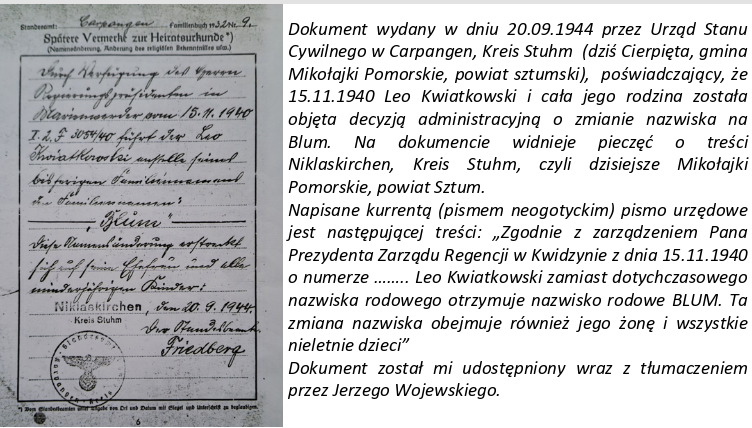 Standesamt: Carpangen Familienbuch 1932 Nr. 9.
Spätere Vermerke zur Heiratsurkunde*)
(Namensänderung, Änderung des religiösen Bekenntnisses usw.)
Durch Verfügung des Herrn
Regierungspräsidenten in
Marienwerder vom 15.11.1940
I. 2. F 3084/40 führt der Leo
Kwiatkowski anstelle seines
bisherigen Familiennamens
den Familiennamen:
„Blum"
Diese Namensänderung erstreckt
sich auf seine Ehefrau und alle
minderjährigen Kinder.
Niklaskirchen, den 20. 9. 1944.
Kreis Stuhm
Der Standesbeamte
Friedberg
6
Dokument wydany w dniu 20.09.1944 przez Urząd Stanu
Cywilnego w Carpangen, Kreis Stuhm (dziś Cierpięta, gmina
Mikołajki Pomorskie, powiat sztumski), poświadczający, że
15.11.1940 Leo Kwiatkowski i cała jego rodzina została
objęta decyzją administracyjną o zmianie nazwiska na
Blum. Na dokumencie widnieje pieczęć o treści
Niklaskirchen, Kreis Stuhm, czyli dzisiejsze Mikołajki
Pomorskie, powiat Sztum.
Napisane kurrentą (pismem neogotyckim) pismo urzędowe
jest następującej treści: „Zgodnie z zarządzeniem Pana
Prezydenta Zarządu Regencji w Kwidzynie z dnia 15.11.1940
o numerze …..... Leo Kwiatkowski zamiast dotychczasowego
nazwiska rodowego otrzymuje nazwisko rodowe BLUM. Ta
zmiana nazwiska obejmuje również jego żonę i wszystkie
nieletnie dzieci”
Dokument został mi udostępniony wraz z tłumaczeniem
przez Jerzego Wojewskiego.